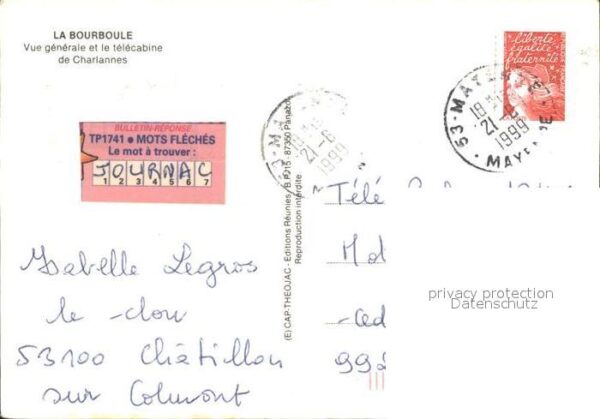 LA BOURBOULE
Vue générale et le télécabine
de Charlannes
BULLETIN-RÉPONSE
TP1741 • MOTS FLÉCHÉS
Le mot à trouver :
JOURNAC
1 2 3 4 5 6 7
Isabelle Legros
le clou
53100 Châtillon
sur Colmont
(E) CAP-THEOJAC - Editions Réunies
87350 Panazol
Reproduction interdite
liberté
égalité
fraternité
53-MAYENNE
21-6
1999
MAYENNE
53-MA
21-6
1999
Télé
Mot
-Ced
992
privacy protection
Datenschutz